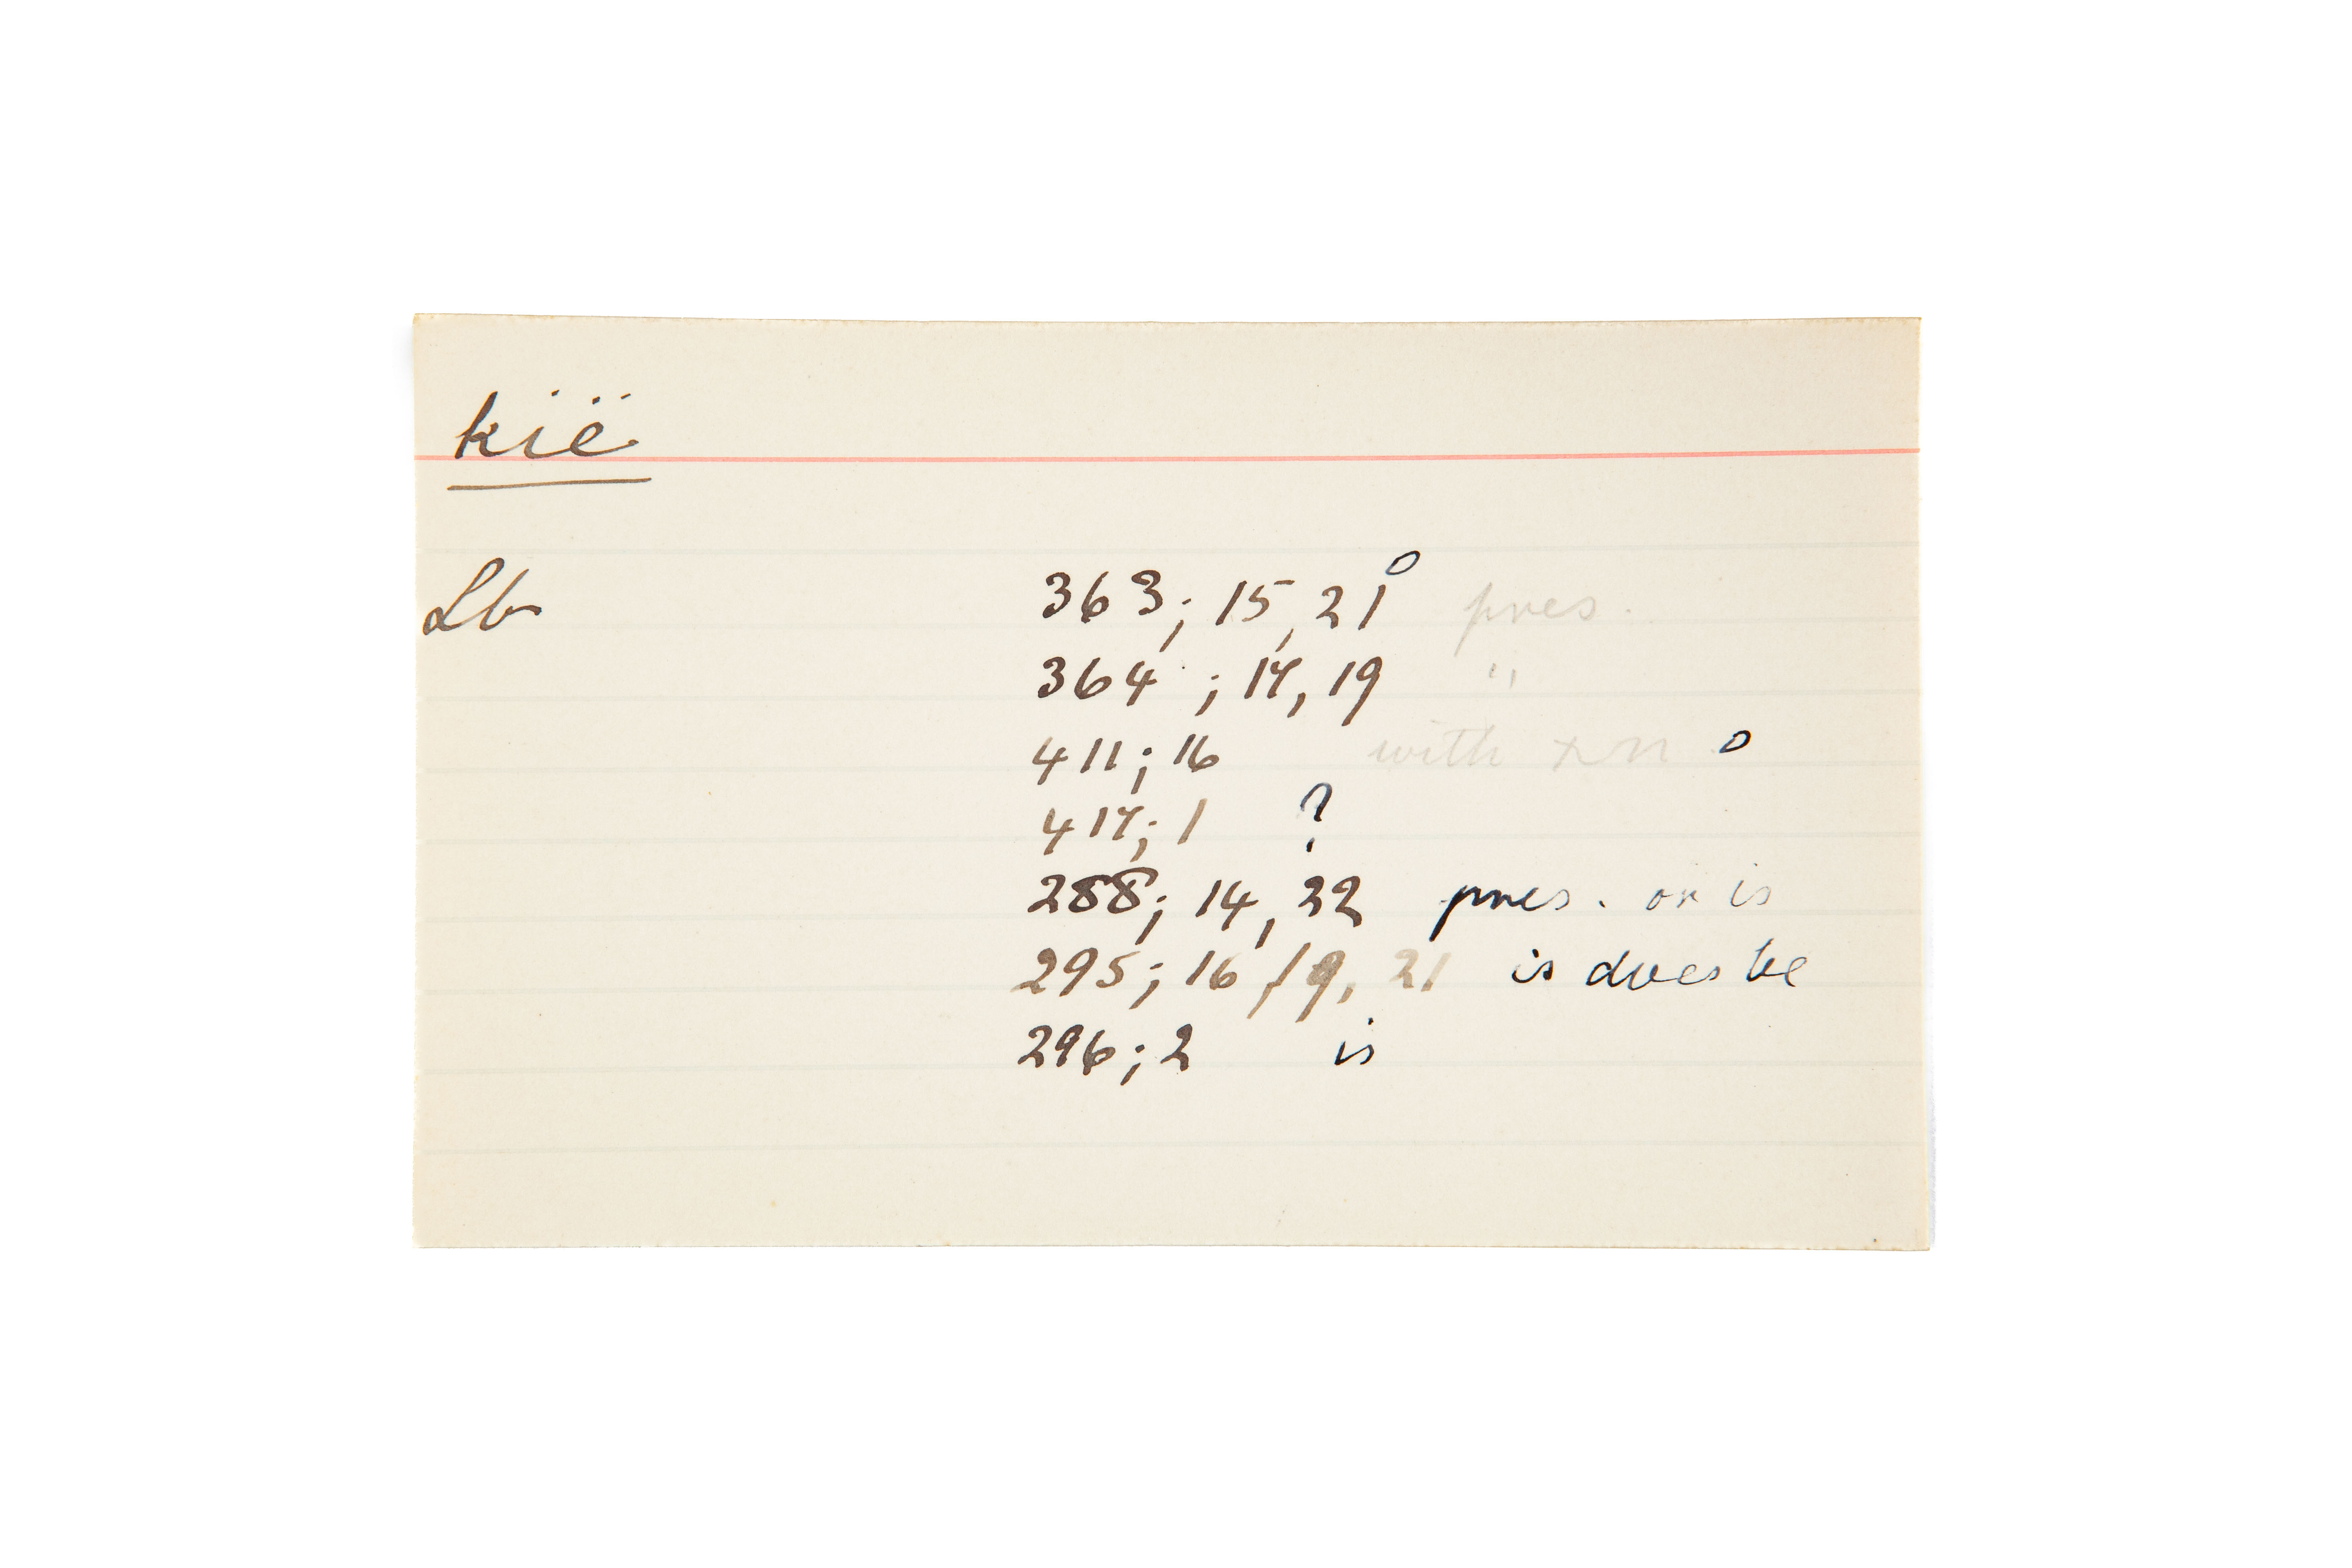 kië
Lb 363; 15, 21 o pres.
364; 17, 19 "
411; 16 with o
417; 1 ?
288; 14, 22 pres. or is
295; 16, 19, 21 is does be
296; 2 is